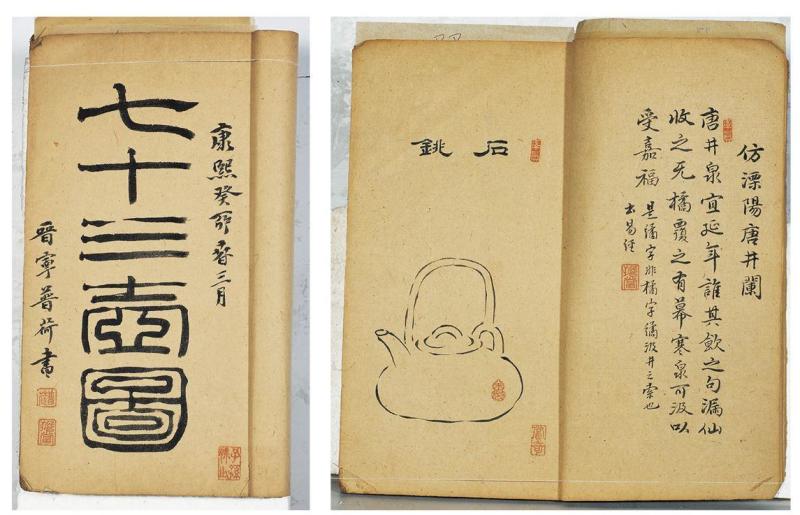 康熙癸卯春三月
七十三壺圖
晉寧普荷書
仿溧陽唐井闌
唐井泉宜延年誰其飲之句漏仙
收之无橘覆之有幕寒泉可汲以
受嘉福
是繘字非橘字繘汲井之索也
出易經
石銚